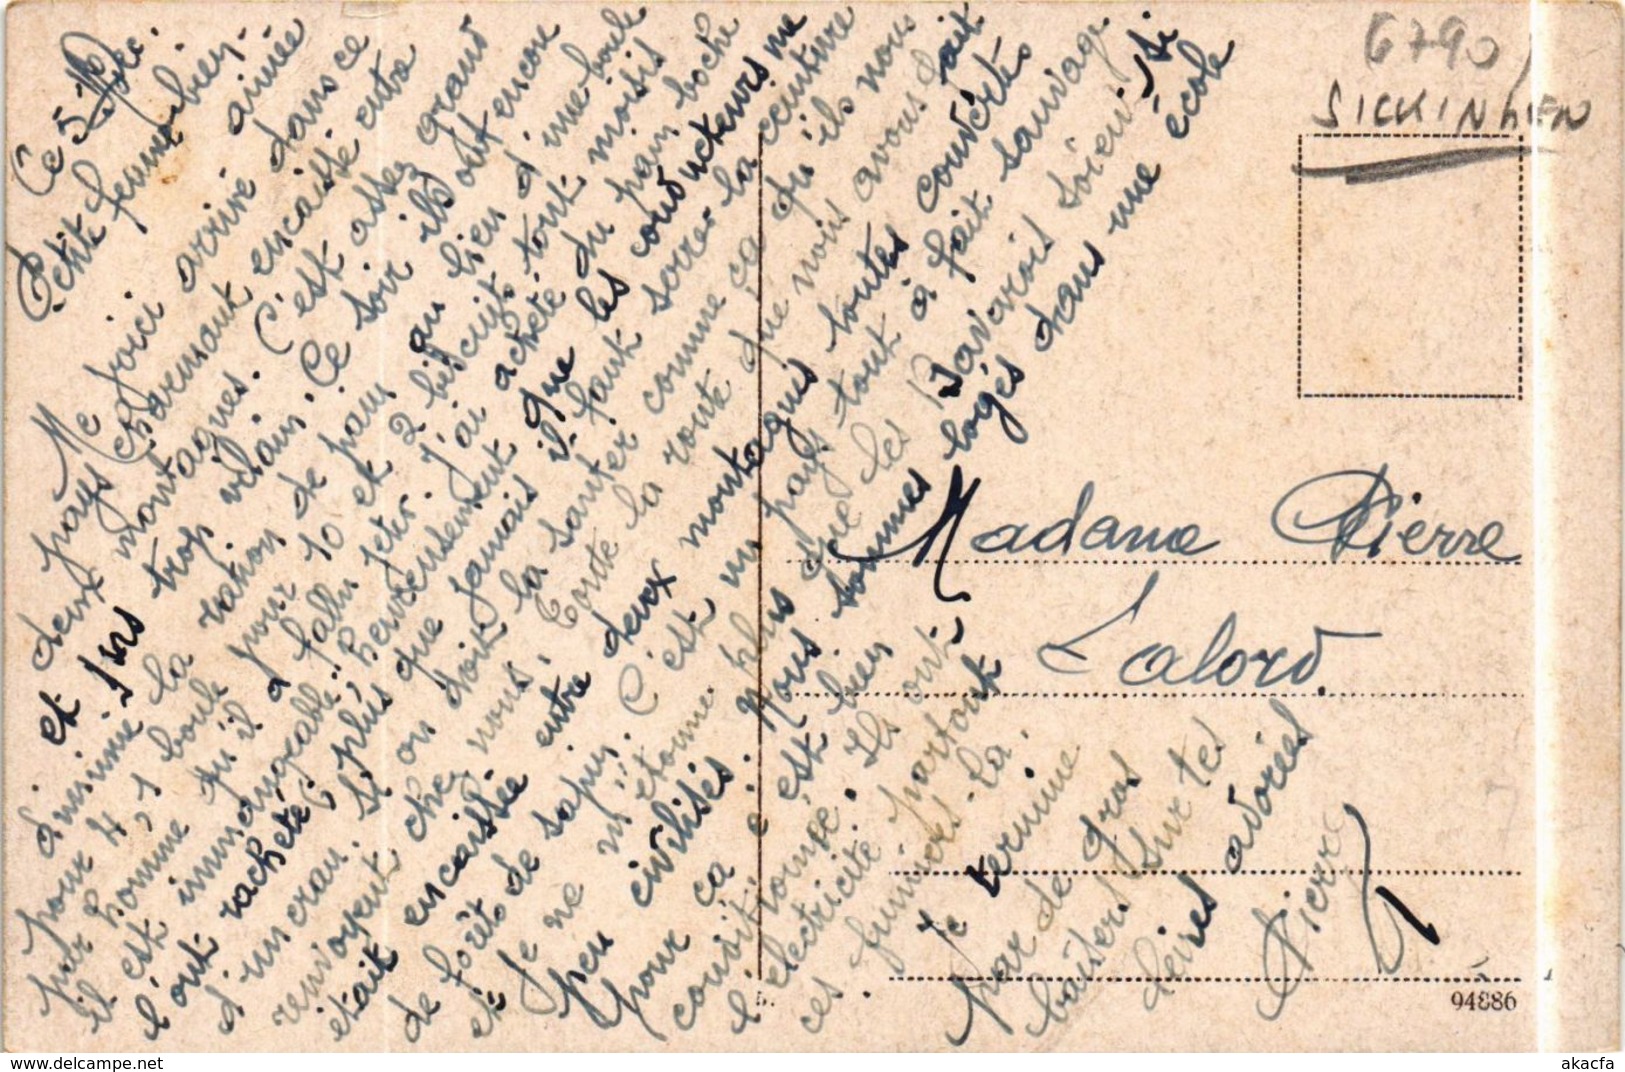 Ce 5 Déc.
Petite femme bien-
aimée
Me voici arrivé dans ce
pays charmant encaissé entre
deux montagnes. C'est assez grand
et pas trop vilain. Ce soir ils ont encore
diminué la ration de pain au lieu d'une boule
pour 4, 1 boule pour 10 et 2 biscuits tout moisis
par homme qu'il a fallu jeter. J'ai acheté du pain boche
il est immangeable; heureusement que les conducteurs me
l'ont racheté; plus que jamais il faut serrer la ceinture
d'un cran. Si on doit la sauter comme ça qu'ils nous
renvoyent chez nous. Toute la route que nous avons fait
était encaissée entre deux montagnes toutes couvertes
de forêts de sapin. C'est un pays tout à fait sauvage
et je ne m'étonne plus que les Bavarois soient si
peu civilisés. Nous sommes logés dans une école
pour ça c'est bien
Ils ont
l'électricité partout
ces fumiers-là.
Je termine
par de gros
baisers sur tes
lèvres adorées
Pierre
6790
SICKINHEN
Madame Pierre
Lalord
94886
akacfa